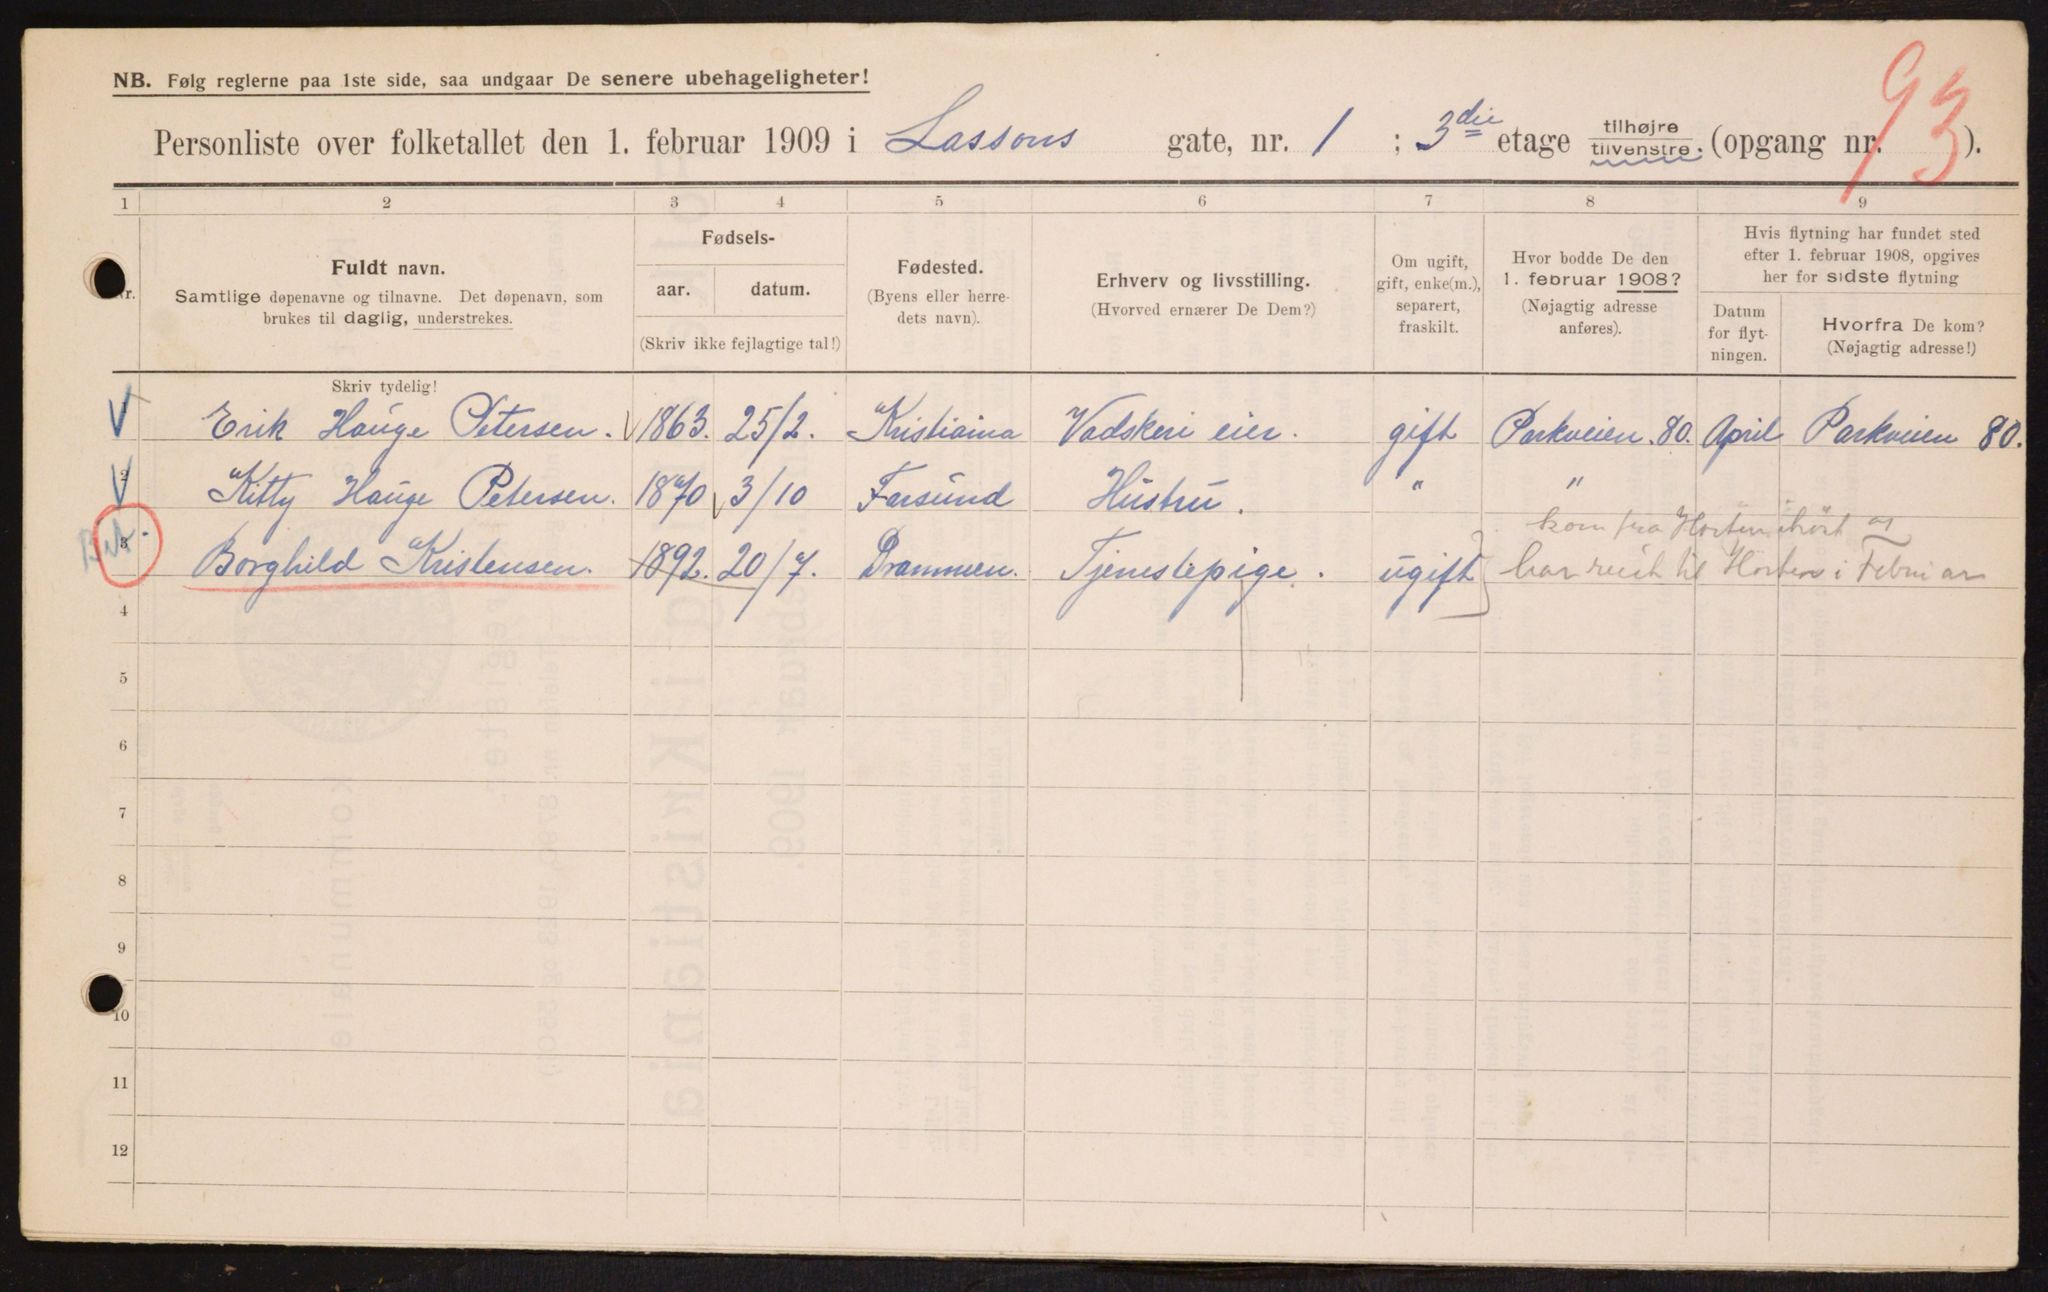 NB. Følg reglerne paa 1ste side, saa undgaar De senere ubehageligheter!
Personliste over folketallet den 1. februar 1909 i Lassons gate, nr. 1 ; 3die etage tilhøjre tilvenstre. (opgang nr. ).
93
1 2 3 4 5 6 7 8 9
Nr.
Fuldt navn.
Samtlige døpenavne og tilnavne. Det døpenavn, som
brukes til daglig, understrekes.
Fødsels-
aar. datum.
(Skriv ikke fejlagtige tal!)
Fødested.
(Byens eller herre-
dets navn).
Erhverv og livsstilling.
(Hvorved ernærer De Dem?)
Om ugift,
gift, enke(m.),
separert,
fraskilt.
Hvor bodde De den
1. februar 1908?
(Nøjagtig adresse
anføres).
Hvis flytning har fundet sted
efter 1. februar 1908, opgives
her for sidste flytning
Datum
for flyt-
ningen.
Hvorfra De kom?
(Nøjagtig adresse!)
Skriv tydelig!
1 Erik Hauge Petersen. 1863. 25/2. Kristiania Vadskeri eier. gift Parkveien. 80. April Parkveien 80.
2 Kitty Hauge Petersen. 1870 3/10 Farsund Hustru. " "
kom fra Horten ihøst og
3 Borghild Kristensen. 1892. 20/7. Drammen. Tjenestepige. ugift har reist til Horten i Februar
4
5
6
7
8
9
10
11
12